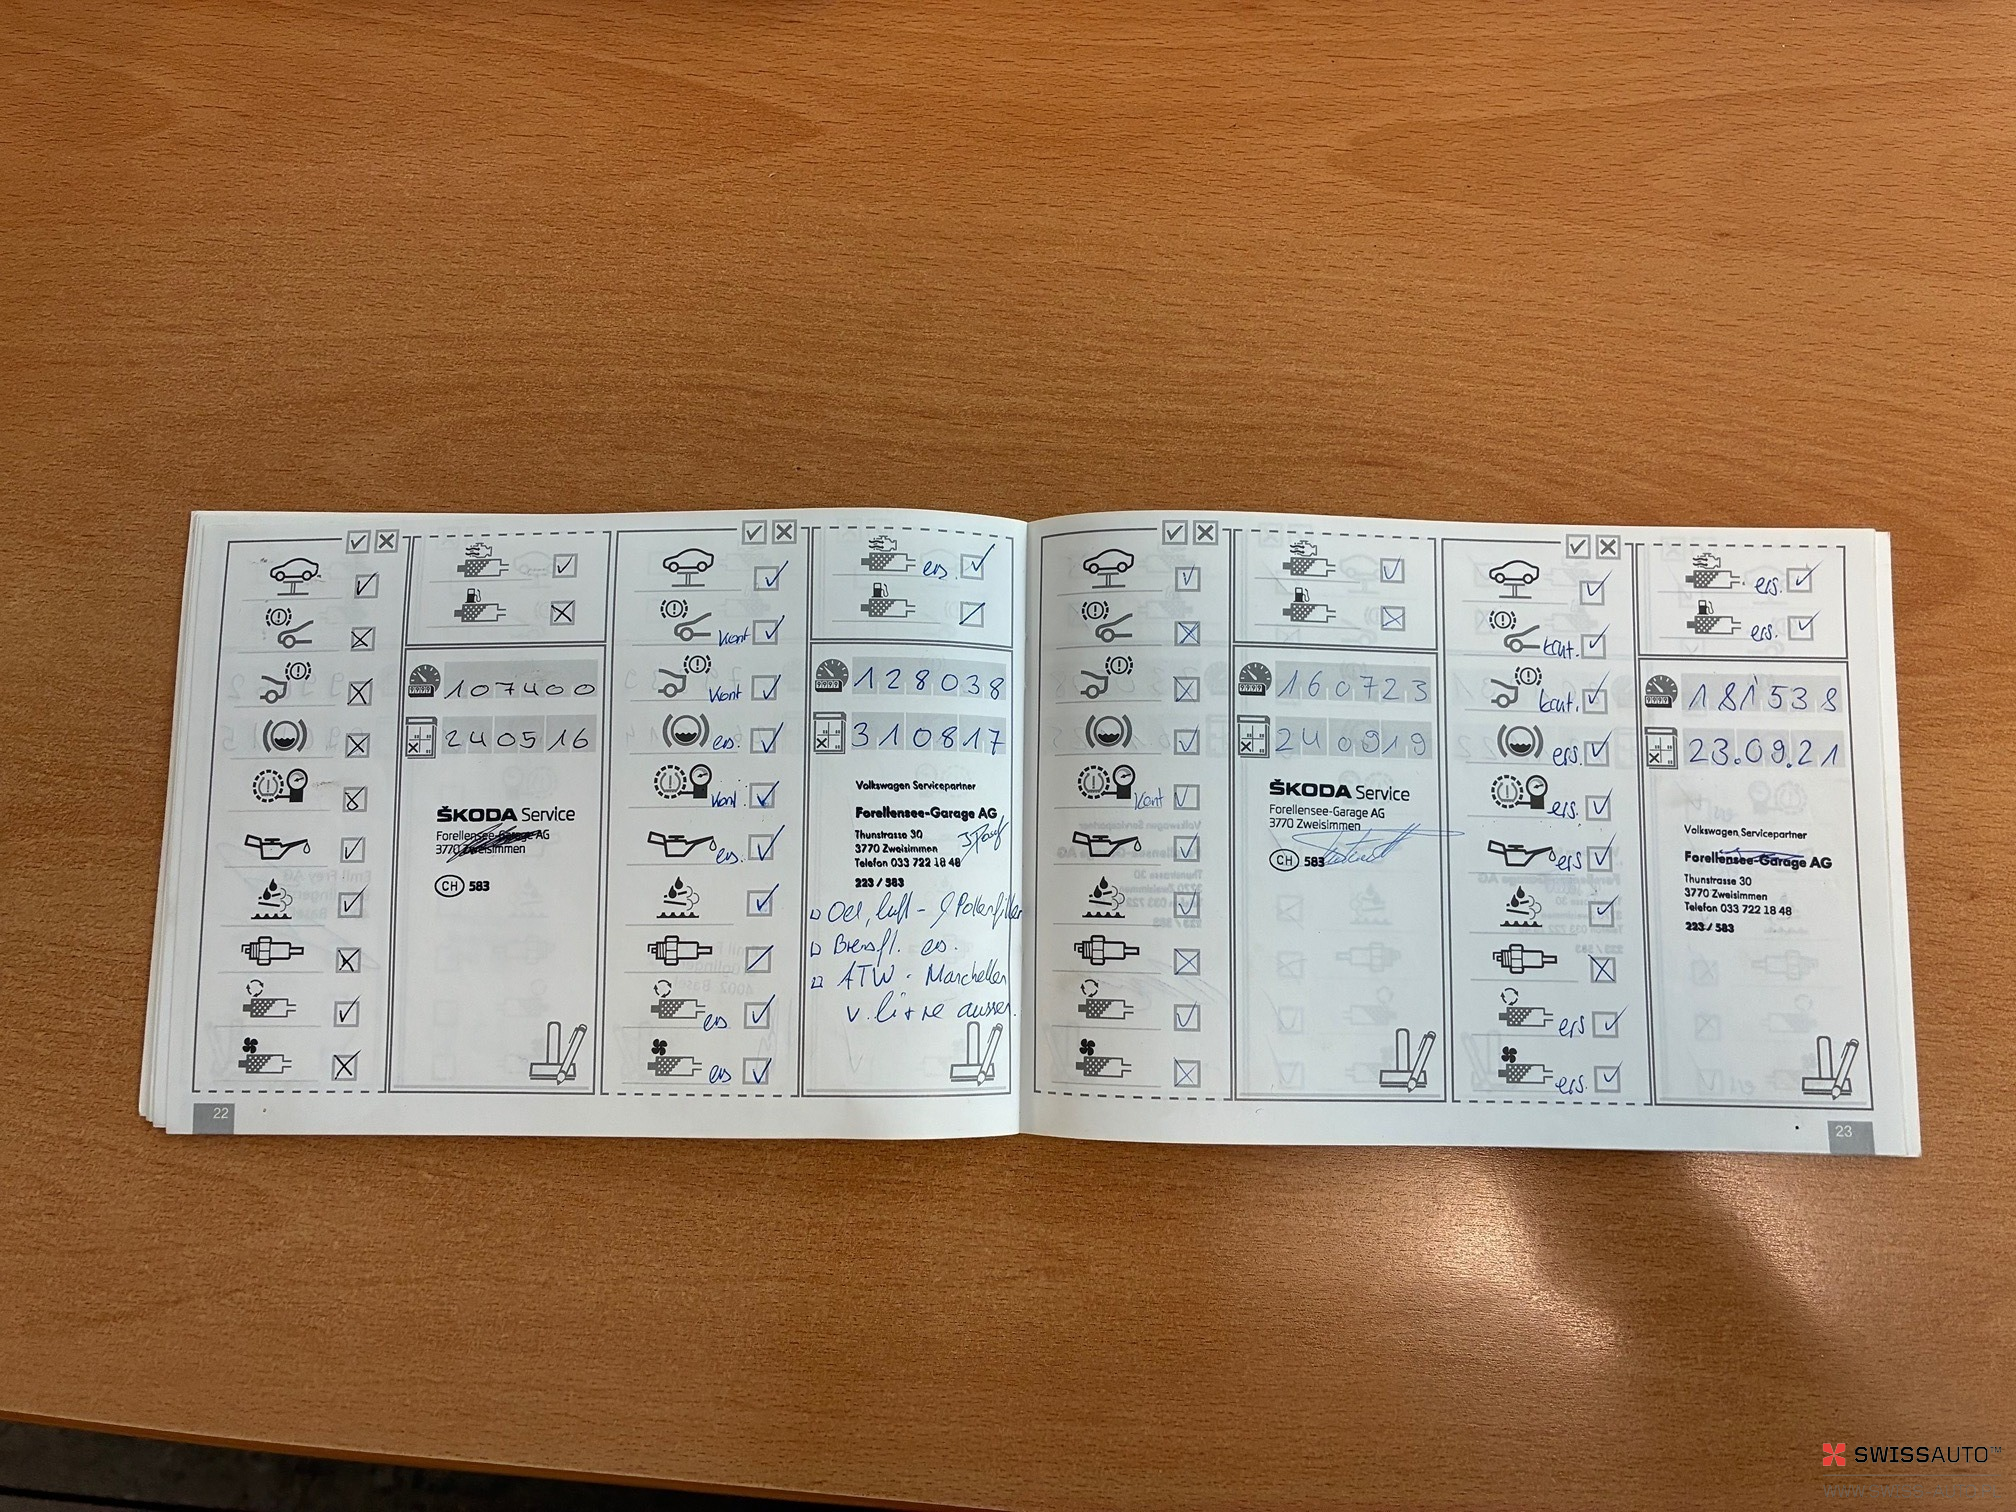 107400
240516
ŠKODA Service
Forellensee-Garage AG
3770 Zweisimmen
CH 583
22
Kont
Kont
ers.
Kont.
ers.
ers
ers
ers.
128038
310817
Volkswagen Servicepartner
Forellensee-Garage AG
Thunstrasse 30
3770 Zweisimmen
Telefon 033 722 18 48
223 / 583
Oel, Luft- & Pollenfilter
Bremsfl. ers.
ATW - Manchetten
aussen
Kont
160723
240919
ŠKODA Service
Forellensee-Garage AG
3770 Zweisimmen
CH 583
kont.
kont.
ers.
ers.
ers
ers
ers.
ers.
ers.
181538
23.09.21
Volkswagen Servicepartner
Forellensee-Garage AG
Thunstrasse 30
3770 Zweisimmen
Telefon 033 722 18 48
223 / 583
23
SWISSAUTO™